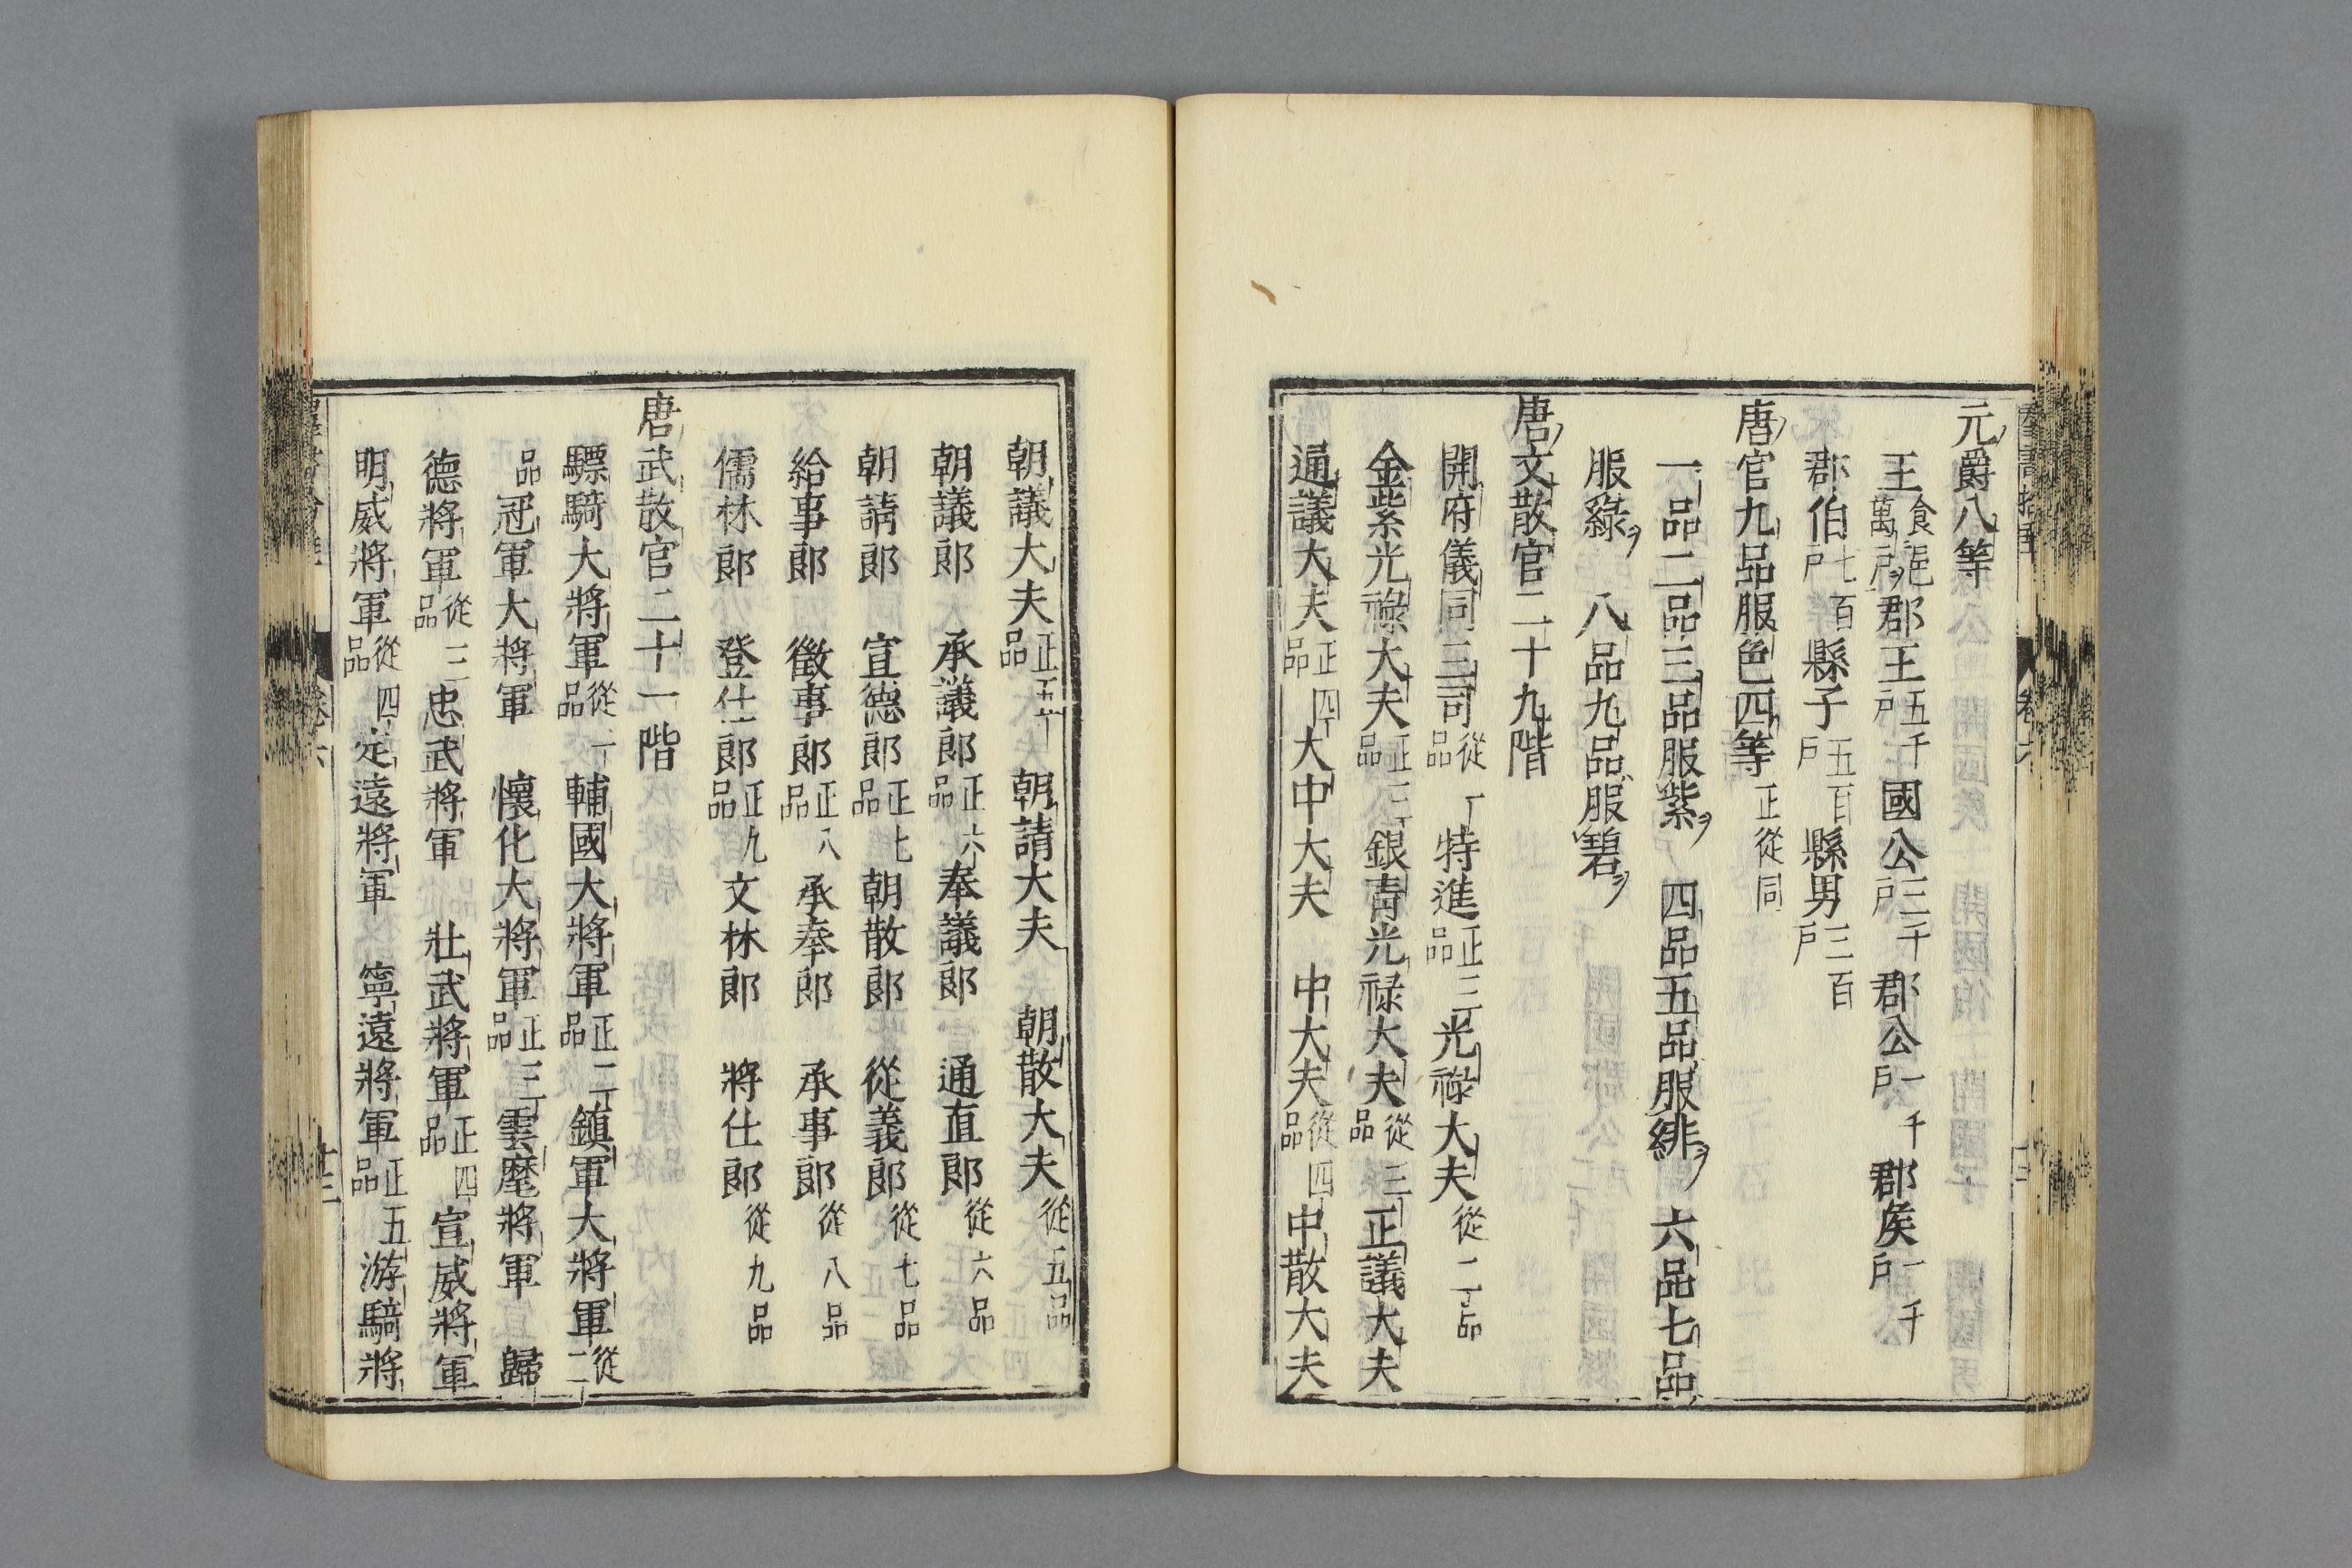 元爵八等
王食邑萬戶郡王五千戶國公三千戶郡公一千戶郡矦一千戶
郡伯七百戶縣子五百戶縣男三百戶
唐官九品服色四等正從同
一品二品三品服紫ヲ四品五品服緋ヲ六品七品
服綠ヲ八品九品服碧ヲ
唐文散官二十九階
開府儀同三司從一品特進正二品光祿大夫從二品
金紫光祿大夫正三品銀青光祿大夫從三品正議大夫
通議大夫正四品大中大夫中大夫從四品中散大夫
朝議大夫正五品朝請大夫朝散大夫從五品
朝議郎承議郎正六品奉議郎通直郎從六品
朝請郎宣德郎正七品朝散郎從義郎從七品
給事郎徵事郎正八品承奉郎承事郎從八品
儒林郎登仕郎正九品文林郎將仕郎從九品
唐武散官二十一階
驃騎大將軍從一品輔國大將軍正二品鎮軍大將軍從二
品冠軍大將軍懷化大將軍正三品雲麾將軍歸
德將軍從三品忠武將軍壯武將軍正四品宣威將軍
明威將軍從四品定遠將軍寧遠將軍正五品游騎將
卷六
十三